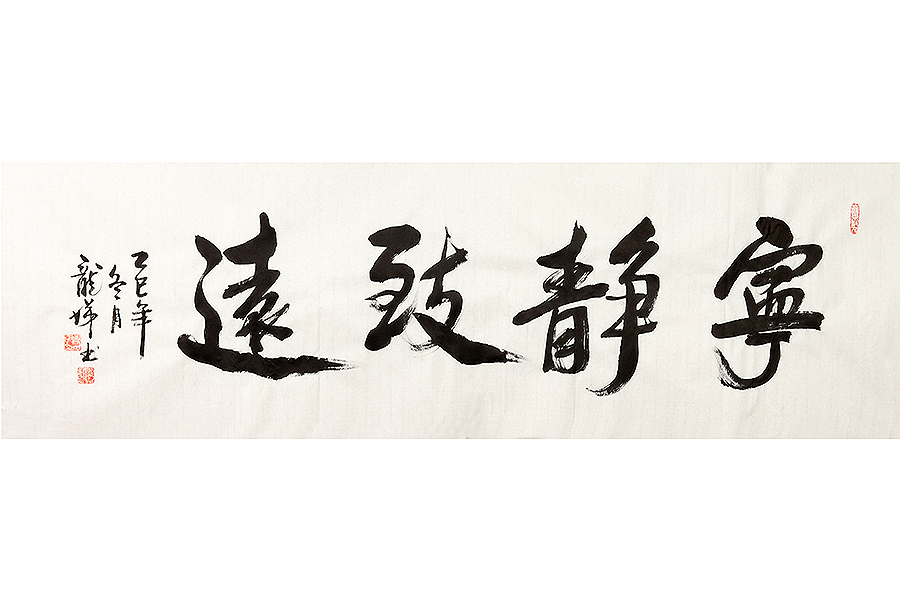 寧靜致遠
乙巳年
冬月
龍墀書